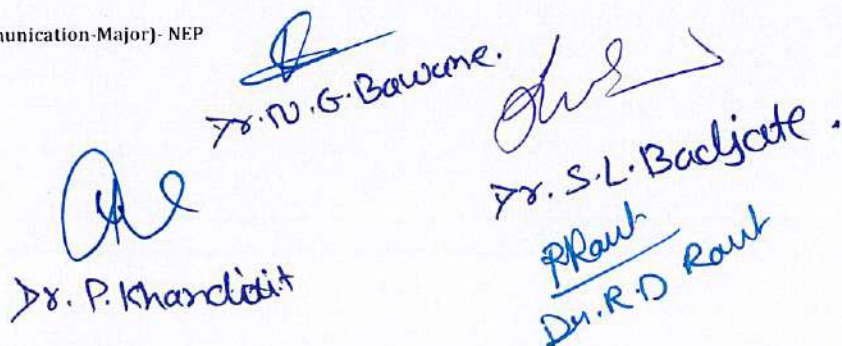 munication-Major)- NEP
Dr. N. G. Bawane.
Dr. S. L. Badjate.
Dr. P. Khandait
RRaut
Dr. R. D Raut